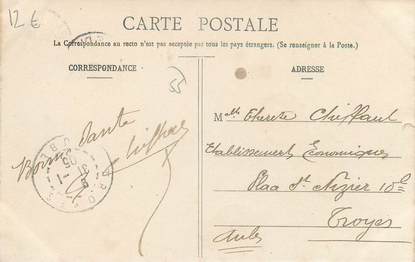 12 €
CARTE POSTALE
La Correspondance au recto n'est pas acceptée par tous les pays étrangers. (Se renseigner à la Poste.)
CORRESPONDANCE
ADRESSE
55
Bonne Santé
Chiffaut
Mlle Thérèse Chiffaut
Etablissements Economiques
Place St. Nizier 10
Troyes
Aube